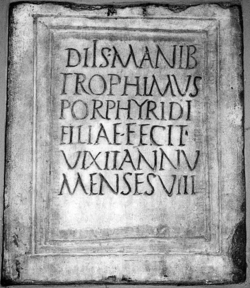 DIISMANIB
TROPHIMUS
PORPHYRIDI
FILIAE·FECIT
VIXITANNV
MENSESVIII